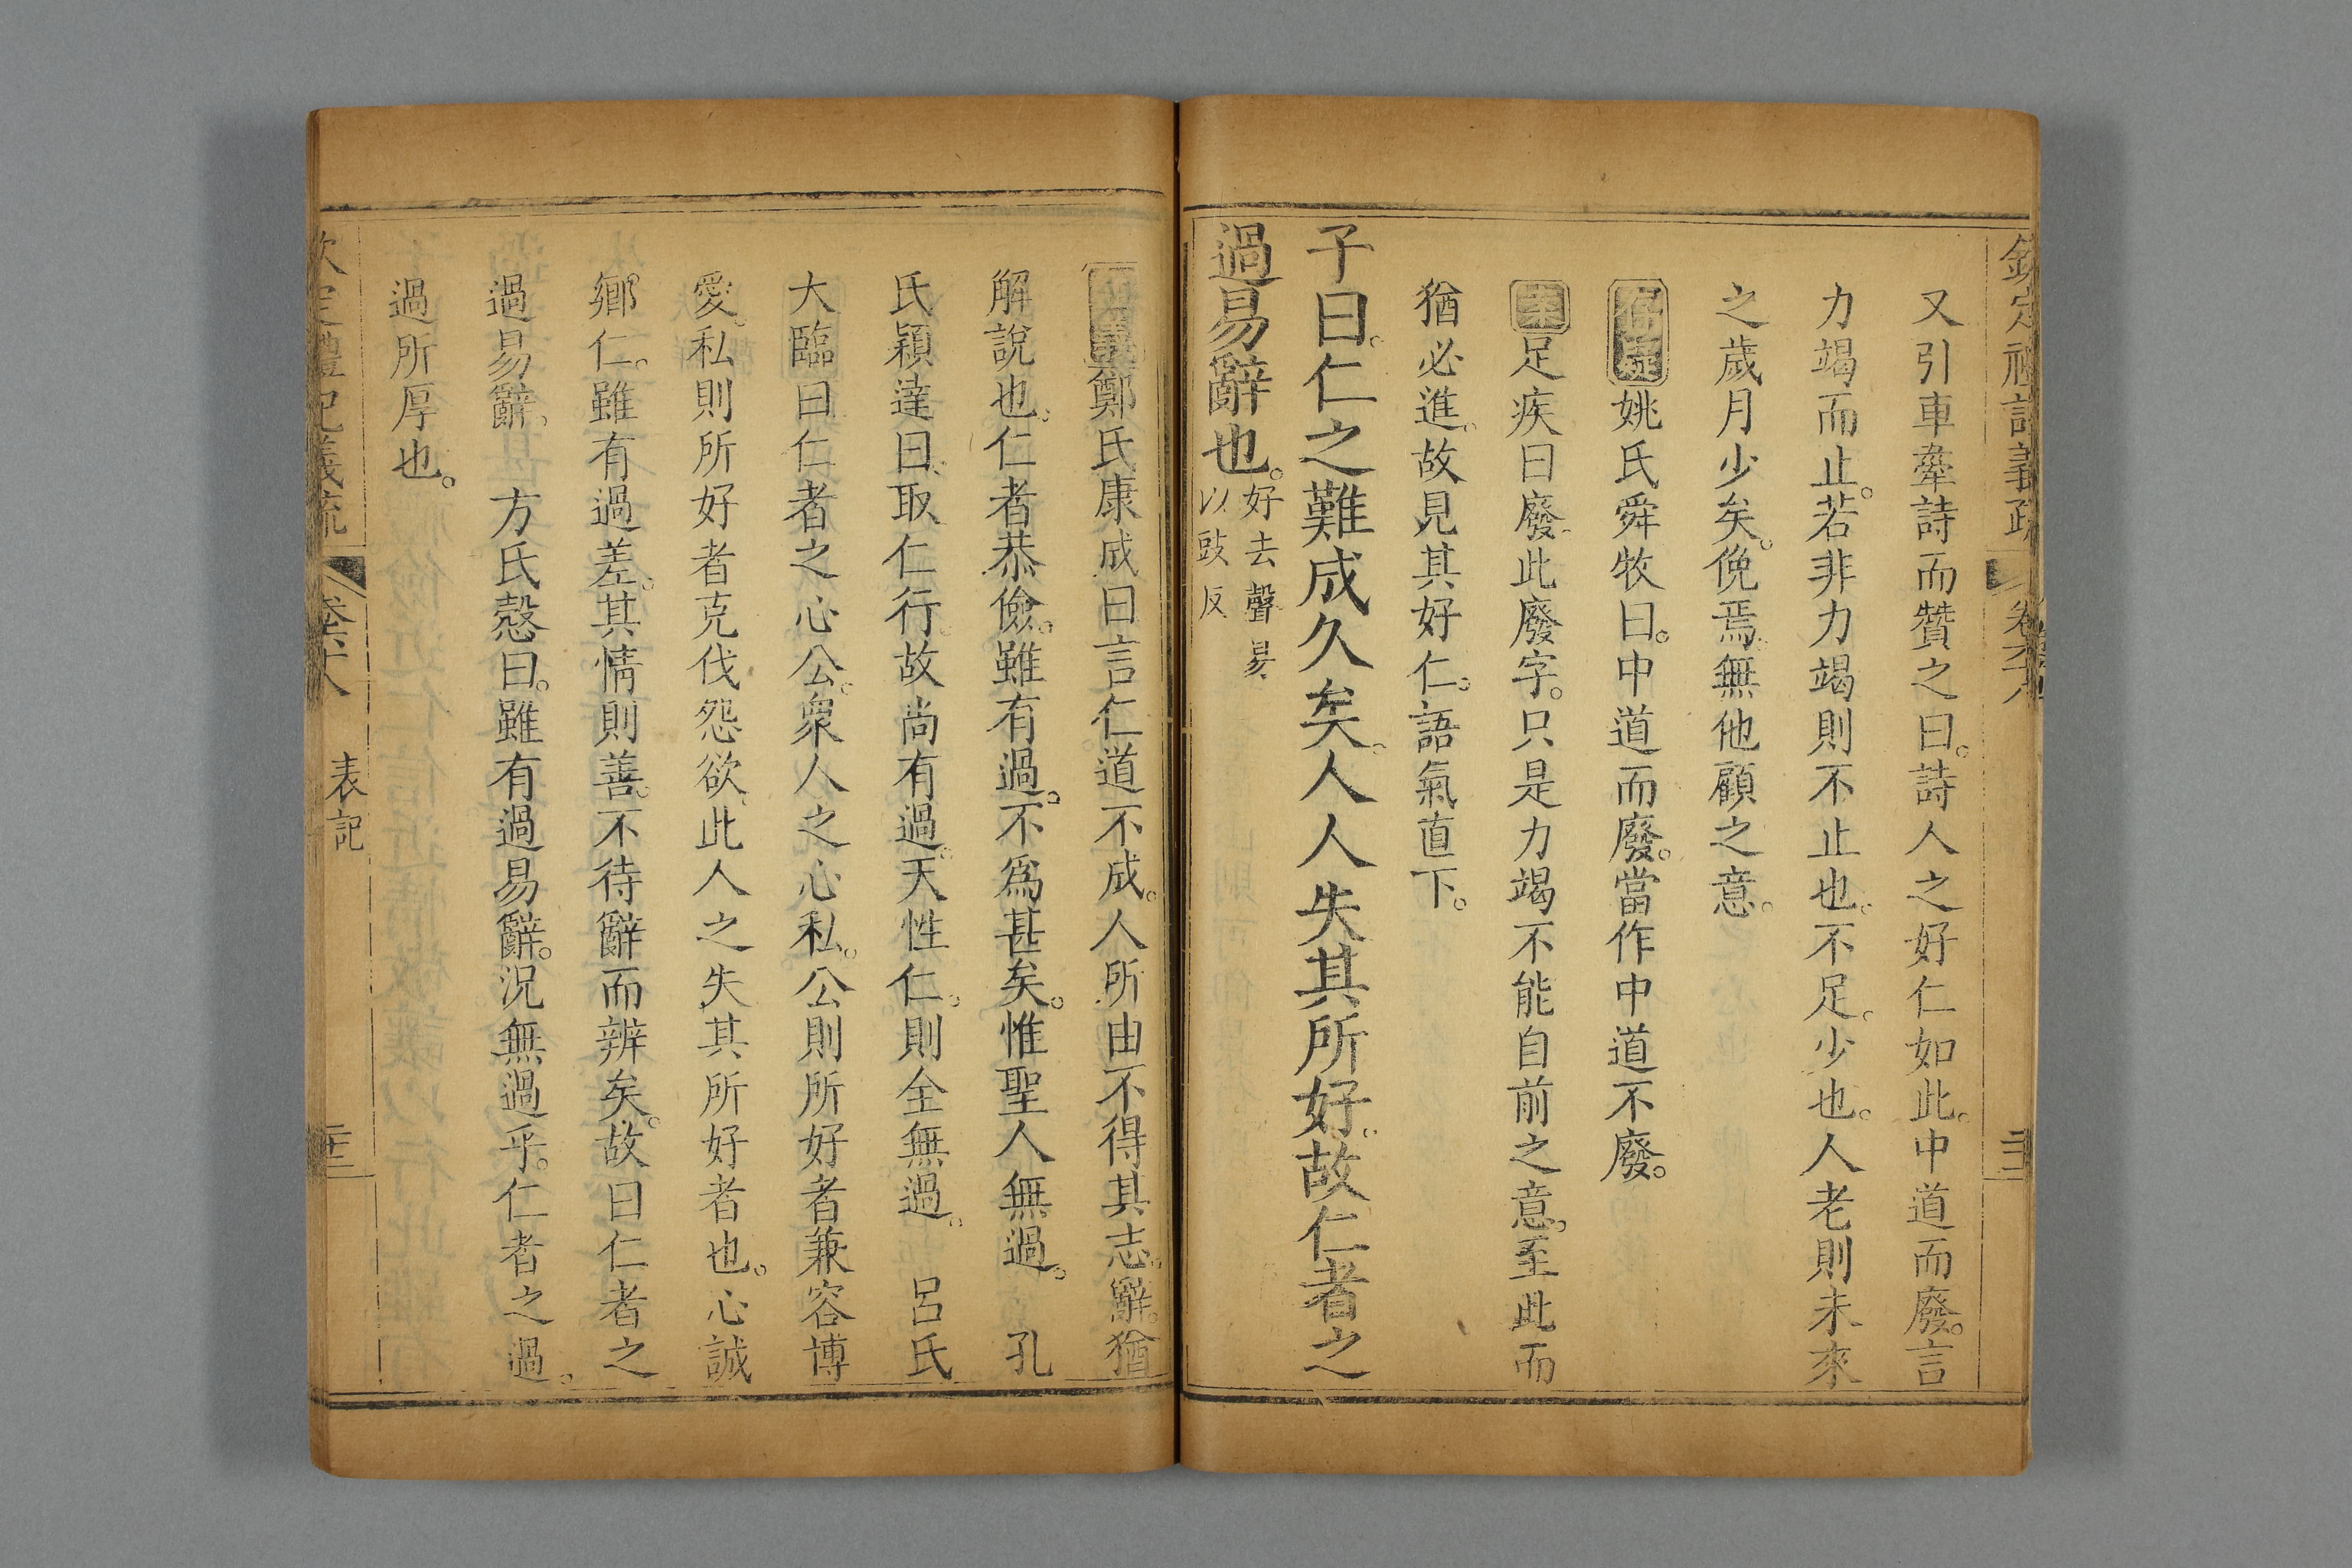 欽定禮記義疏 卷六十八
又引車舝詩而贊之曰。詩人之好仁如此。中道而廢。言
力竭而止。若非力竭則不止也。不足。少也。人老則未來
之歲月少矣。俛焉。無他顧之意。
存疑姚氏舜牧曰。中道而廢。當作中道不廢。
案足疾曰廢。此廢字。只是力竭不能自前之意。至此而
猶必進。故見其好仁。語氣直下。
子曰。仁之難成久矣。人人失其所好。故仁者之
過易辭也。好去聲易
以豉反
正義鄭氏康成曰言仁道不成。人所由不得其志。辭。猶
解說也。仁者恭儉。雖有過。不爲甚矣。惟聖人無過。 孔
氏穎達曰。取仁行。故尚有過。天性仁。則全無過。 呂氏
大臨曰仁者之心公。衆人之心私。公則所好者兼容博
愛。私則所好者克伐怨欲。此人之失其所好者也。心誠
鄉仁。雖有過差。其情則善。不待辭而辨矣。故曰仁者之
過易辭。 方氏慤曰。雖有過易辭。況無過乎。仁者之過。
過所厚也。
欽定禮記義疏 卷六十八 表記